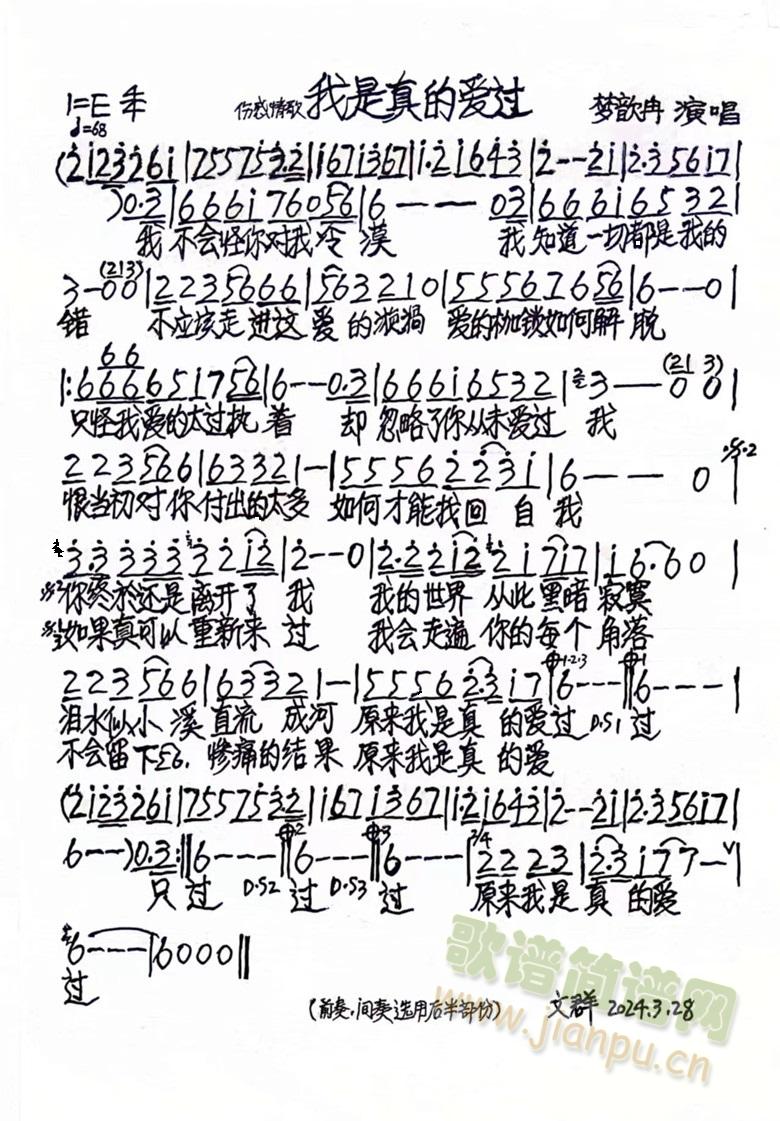 1=E 伤感情歌 我是真的爱过 梦歆冉 演唱
♩=68
(2123261|75575322|1671367|1·21643|2--21|2·35617|
)0·3|666176056|6---03|66616532|
我 不会怪你对我冷 漠 我 知道一切都是我的
(213)
3-00|2235666|5632210|55567656|6--0|
错 不应该走 进这 爱 的漩涡 爱的枷锁如何解 脱
66
|:6666651756|6--0·3|66616532|3--00|
(21 3)
只怪我爱的太过执 着 却 忽略了你从未爱过 我
223566|63321-|55562231|6---0|
恨当初对你付出的太多 如何才能找回 自 我
3·33333212|2--0|2·22122177|16·60|
你终於还是离开了 我 我的世界 从此黑暗 寂寞
如果真可以 重新来 过 我会走遍 你的每个 角落
223566|63321-|55562·317|6---‖6---|
泪水似小 溪直流 成河 原来我是真 的爱过 D.S1 过
不会留下 惨痛的结果 原来我是真 的爱
(2123261|75575322|1671367|1·21643|2--21|2·35617|
6---)0·3:‖6---‖6---‖6---|2223|2·3177-|
只 过 D.S2 过 D.S3 过 原来我是 真 的爱
6---|6000‖
过
(前奏,间奏选用后半部份) 文群 2024.3.28
歌谱简谱网
www.jianpu.cn